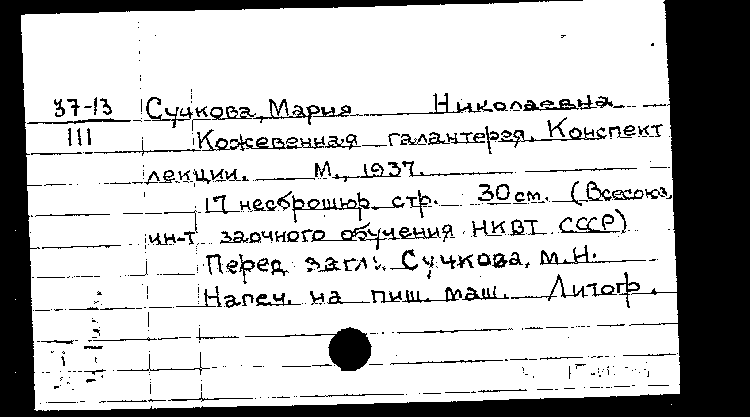 37-13 Сучкова, Мария Николаевна
III Кожевенная галантерея. Конспект
лекции. М., 1937.
17 несброшюр. стр. 30 см. (Всесоюз.
ин-т заочного обучения НКВТ СССР)
Перед загл.: Сучкова, М.Н.
Напеч. на пиш. маш. Литогр.